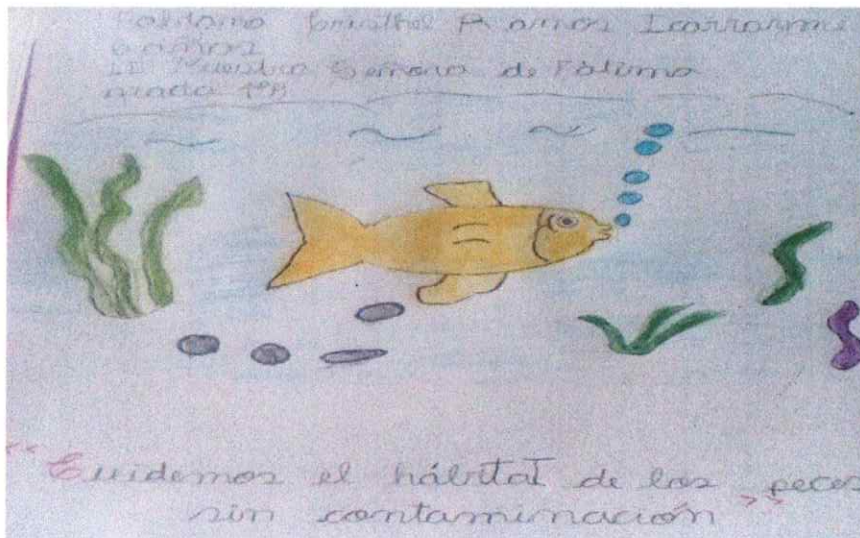 Ramos
6 años
Nuestra Señora de Fátima
grado 1°B
"Cuidemos el hábitat de los peces
sin contaminación"